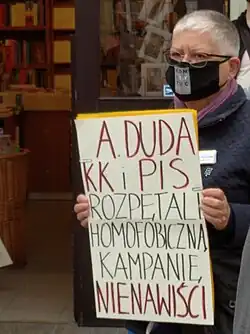 A. DUDA
KK i PIS
ROZPĘTALI
HOMOFOBICZNĄ
KAMPANIĘ
NIENAWIŚCI